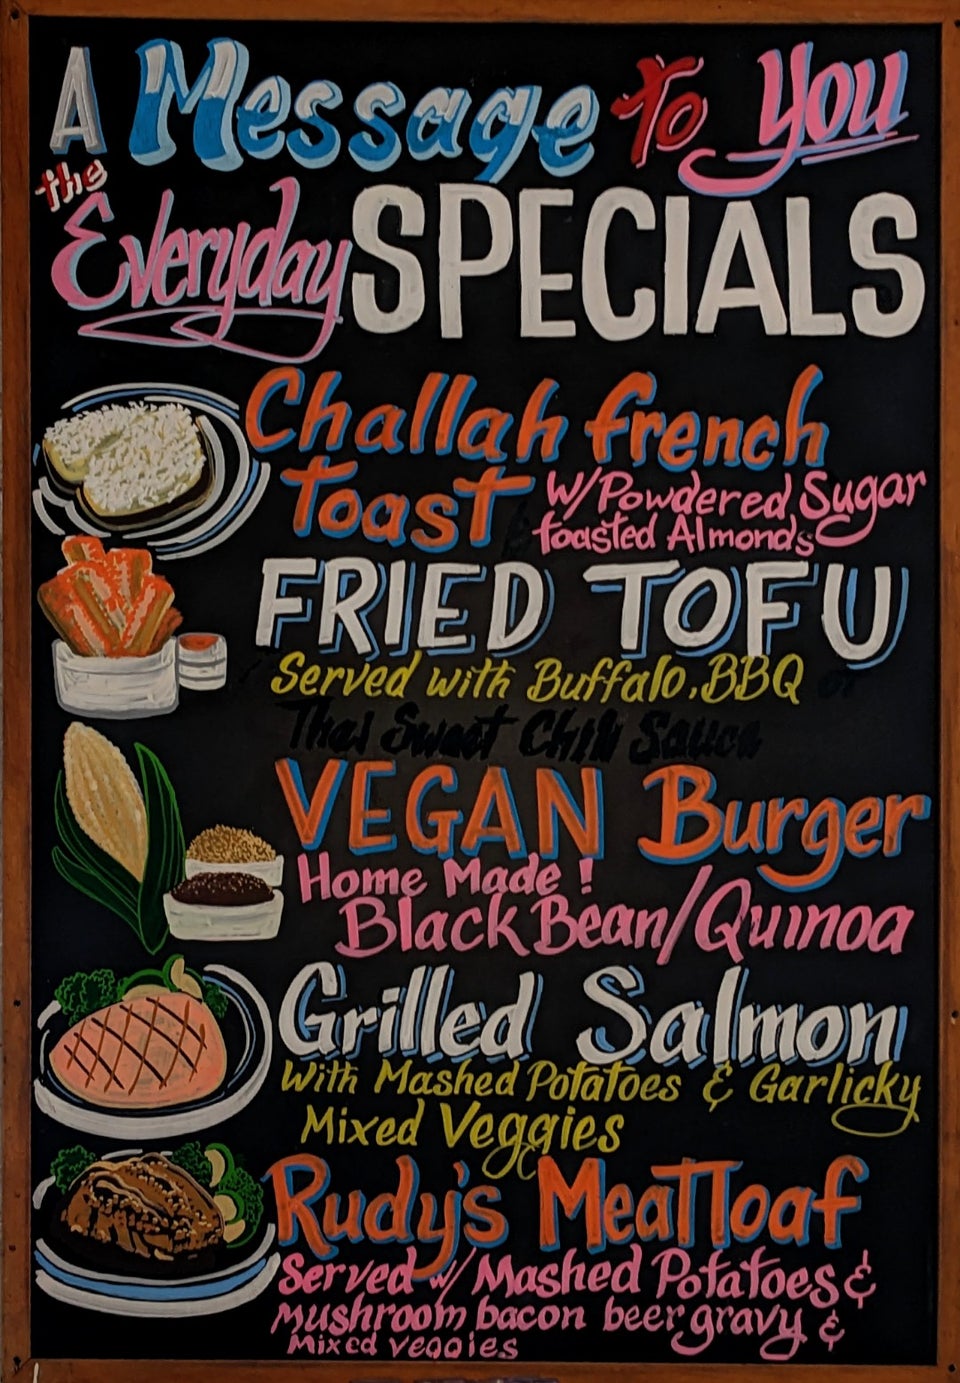 A Message To You
the
Everyday SPECIALS
Challah french
Toast w/Powdered Sugar
toasted Almonds
FRIED TOFU
Served with Buffalo, BBQ or
Thai Sweet Chili Sauce
VEGAN Burger
Home Made!
Black Bean/Quinoa
Grilled Salmon
With Mashed Potatoes & Garlicky
Mixed Veggies
Rudy's Meatloaf
Served w/ Mashed Potatoes &
mushroom bacon beer gravy &
Mixed veggies